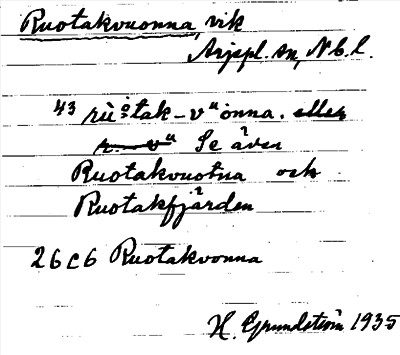 Ruotakvuonna, vik
Arjepl. sn, Nb. l.
43 rùo̊tak-vᵘònna. eller
r. vᵘ Se även
Ruotakvuotna och
Ruotakfjärden
26 c 6 Ruotakvonna
H. Grundström 1935